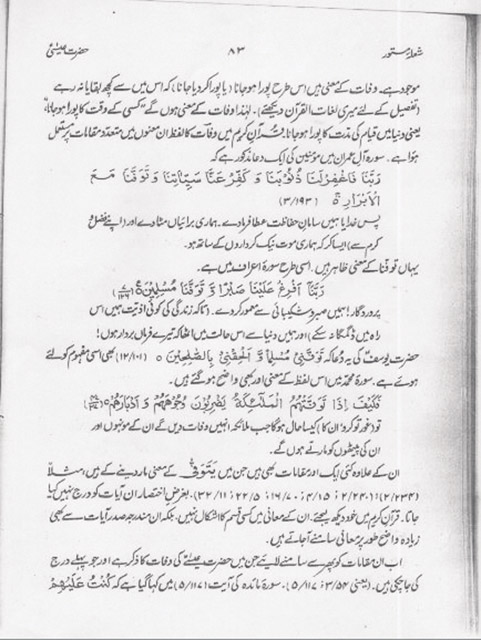 شعلۂ مستور ۸۳ حضرت عیسیٰؑ
موجود ہے۔ وفات کے معنی ہیں اس طرح پورا ہوجانا (یا پورا کر دیا جانا) کہ اس میں سے کچھ بقایا نہ رہے
(تفصیل کے لئے میری لغات القرآن دیکھئے)۔ لہٰذا وفات کے معنی ہوں گے "کسی کے وقت کا پورا ہوجانا"
یعنی دنیا میں قیام کی مدت کا پورا ہوجانا۔ قرآن کریم میں وفات کا لفظ ان معنوں میں متعدد مقامات پر مستعمل
ہوا ہے۔ سورہ آل عمران میں مومنین کی ایک دعا مذکور ہے کہ
رَبَّنَا فَاغْفِرْ لَنَا ذُنُوْبَنَا وَ كَفِّرْ عَنَّا سَيِّاٰتِنَا وَ تَوَفَّنَا مَعَ
الْاَبْرَارِ ۵ (۳/۱۹۳)
پس خدایا ہمیں سامان حفاظت عطا فرما دے۔ ہماری برائیاں مٹا دے اور (اپنے فضل و
کرم سے) ایسا کر کہ ہماری موت نیک کرداروں کے ساتھ ہو۔
یہاں توفنا کے معنی ظاہر ہیں۔ اسی طرح سورۂ اعراف میں ہے۔
رَبَّنَآ اَفْرِغْ عَلَيْنَا صَبْرًا وَّ تَوَفَّنَا مُسْلِمِيْنَ ۵
پروردگار! ہمیں صبر و شکیبائی سے معمور کر دے۔ (تاکہ زندگی کی کوئی اذیت ہمیں اس
راہ میں ڈگمگا نہ سکے) اور ہمیں دنیا سے اس حالت میں اٹھا کہ تیرے فرماں بردار ہوں!
حضرت یوسفؑ کی یہ دعا کہ تَوَفَّنِيْ مُسْلِمًا وَّ اَلْحِقْنِيْ بِالصّٰلِحِيْنَ ۵ (۱۲/۱۰۱) بھی اسی مفہوم کو لئے
ہوئے ہے۔ سورۂ محمدؐ میں اس لفظ کے معنی اور بھی واضح ہو گئے ہیں۔
فَكَيْفَ اِذَا تَوَفَّتْهُمُ الْمَلٰٓئِكَةُ يَضْرِبُوْنَ وُجُوْهَهُمْ وَ اَدْبَارَهُمْ ۵
تو (خود تو کرو) ان کا) کیسا حال ہوگا جب ملائکہ انہیں وفات دیں گے ان کے مونہوں اور
ان کی پیٹھوں کو مارتے ہوں گے۔
ان کے علاوہ کئی ایک اور مقامات بھی ہیں جن میں يَتَوَفّٰى کے معنی مار دینے کے ہیں، مثلاً
(۲/۲۳۴)؛ (۲/۲۴۰؛ ۴/۱۵؛ ۱۶/۷۰؛ ۲۲/۵؛ ۳۲/۱۱)۔ بغرض اختصار ان آیات کو درج نہیں کیا
جاتا۔ قرآن کریم میں خود دیکھ لیجئے۔ ان کے معانی میں کسی قسم کا اشکال نہیں۔ بلکہ ان مندرجہ صدر آیات سے بھی
زیادہ واضح طور پر معانی سامنے آجاتے ہیں۔
اب ان مقامات کو پھر سے سامنے لائیے جن میں حضرت عیسیٰؑ کی وفات کا ذکر ہے اور جو پہلے درج
کی جاچکی ہیں۔ (یعنی ۳/۵۴؛ ۵/۱۱۷)۔ سورۂ مائدہ کی آیت (۵/۱۱۷) میں کہا گیا ہے کہ كُنْتُ عَلَيْهِمْ